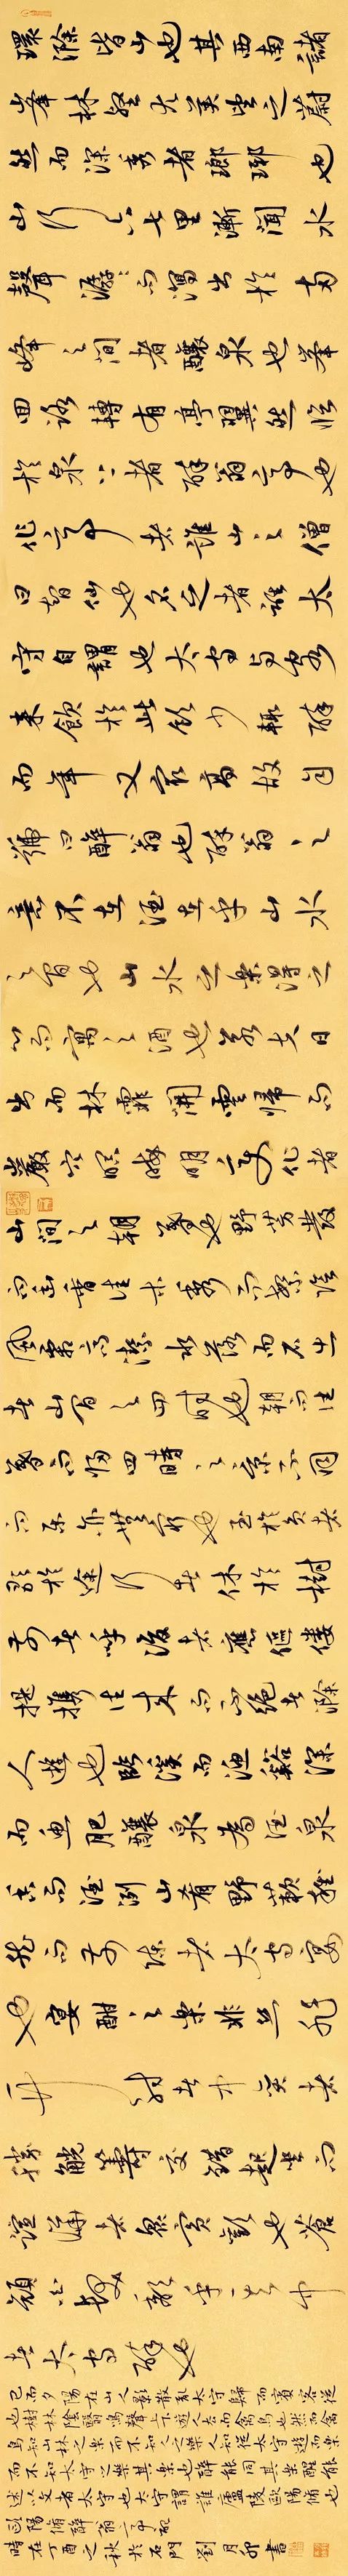 環滁皆山也其西南諸
峰林壑尤美望之蔚
然而深秀者瑯琊也
山行六七里漸聞水
聲潺潺而瀉出於兩
峰之間者釀泉也峯
回路轉有亭翼然臨
於泉上者醉翁亭也
作亭者誰山之僧
曰智仙也名之者誰太
守自謂也太守與客
來飲於此飲少輒醉
而年又最高故自
號曰醉翁也醉翁之
意不在酒在乎山水
之間也山水之樂得之
心而寓之酒也若夫日
出而林霏開雲歸而
巖穴暝晦明變化者
山間之朝暮也野芳發
而幽香佳木秀而繁陰
風霜高潔水落而石出
者山間之四時也朝而往
暮而歸四時之景不同
而樂亦無窮也至於負者
歌於途行者休於樹
前者呼後者應傴僂
提攜往來而不絕者滁
人遊也臨溪而漁谿深
而魚肥釀泉為酒泉
香而酒洌山肴野蔌雜
然而前陳者太守宴
也宴酣之樂非絲非
竹射者中弈者
勝觥籌交錯起坐而
諠譁者眾賓歡也蒼
顏白髮頹乎其中
者太守醉也
已而夕陽在山人影散亂太守歸而賓客從
也樹林陰翳鳴聲上下遊人去而禽鳥也然而禽
鳥知山林之樂而不知人之樂人知從太守遊而樂
而不知太守之樂其樂也醉能同其樂醒能
述以文者太守也太守謂誰廬陵歐陽脩也
歐陽脩醉翁亭記
時在丁酉之秋於石門 劉月卯書